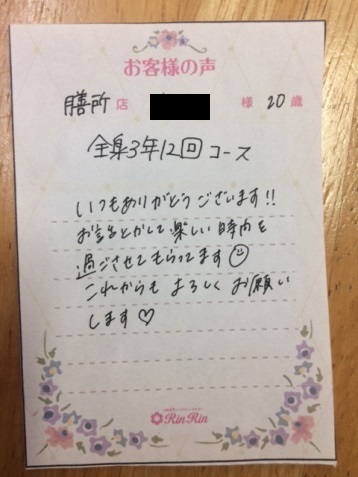 お客様の声
膳所店 様 20歳
全身3年12回コース
いつもありがとうございます!!
お話とかして楽しい時間を
過ごさせてもらってます☺
これからもよろしくお願い
します♡
RinRin